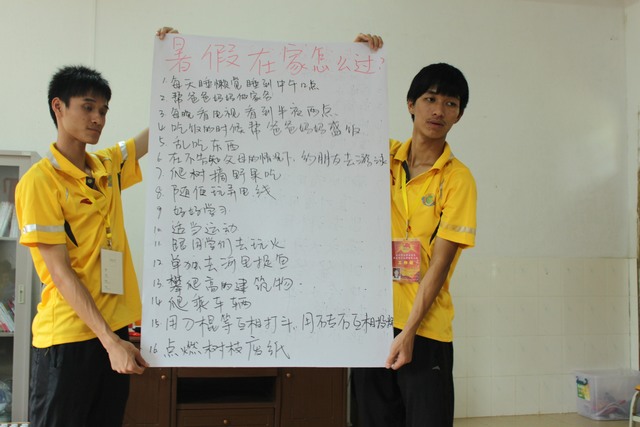 暑假在家怎么过?
1 每天睡懒觉睡到中午12点
2 帮爸爸妈妈做家务
3 每晚看电视看到半夜两点
4 吃饭的时候帮爸爸妈妈盛饭
5 乱吃东西
6 在不告知父母的情况下,约朋友去游泳
7 爬树摘野果吃
8 随便玩弄电线
9 好好学习
10 适当运动
11 跟同学们去玩火
12 单独去河里捉鱼
13 攀爬高的建筑物.
14 爬乘车辆
15 用刀棍等互相打斗、用砖石互相
16 点燃树枝废纸